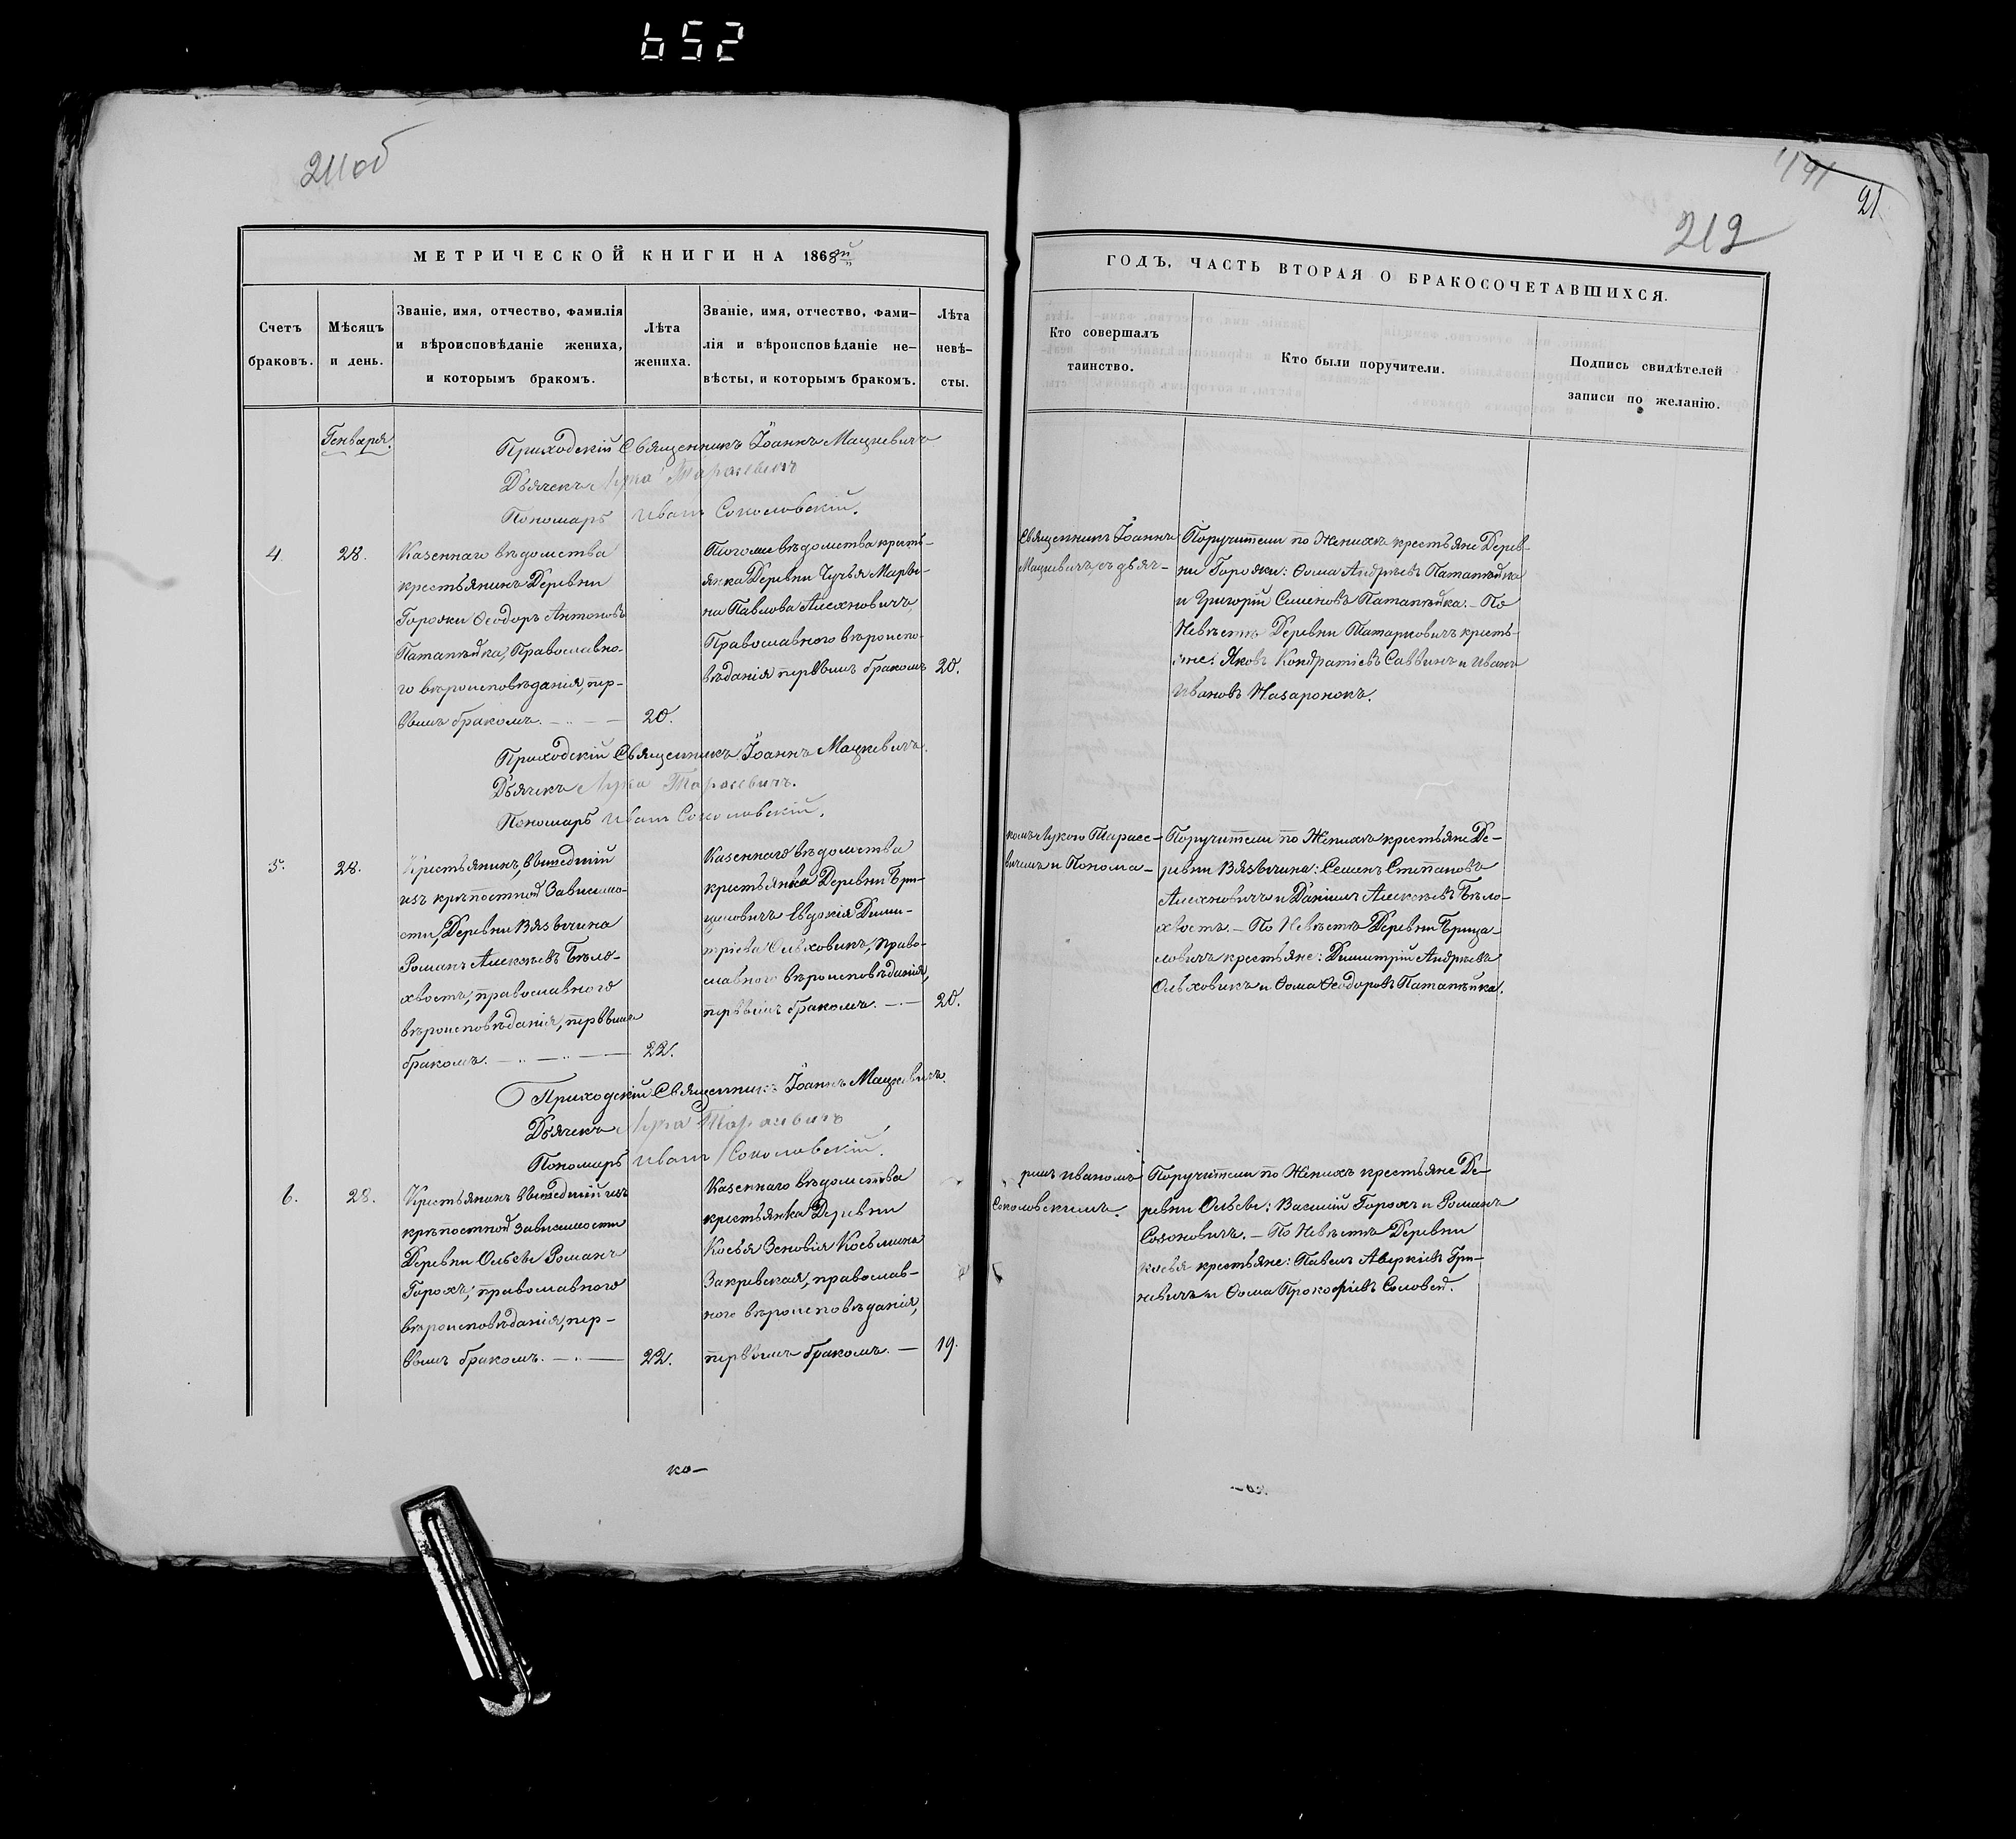 652
211об
МЕТРИЧЕСКОЙ КНИГИ НА 1868й
Счетъ браковъ.
Мѣсяцъ и день.
Званіе, имя, отчество, фамилія
и вѣроисповѣданіе жениха,
и которымъ бракомъ.
Лѣта
жениха.
Званіе, имя, отчество, фами-
лія и вѣроисповѣданіе не-
вѣсты, и которымъ бракомъ.
Лѣта
невѣ-
сты.
Генваря.
Приходскій Священникъ Іоаннъ Мацкевичъ
Дьячекъ Лука Тарасевичъ
Пономарь Иванъ Соколовскій.
4.
28.
Казеннаго вѣдомства
крестьянинъ Деревни
Горошки Ѳеодоръ Антоновъ
Патапѣйка, Православно-
го вѣроисповѣданія, пер-
вымъ бракомъ.
20.
Тогоже вѣдомства кресть-
янка Деревни Чучья Марѳи-
на Павлова Алехновичъ
Православного вѣроиспо-
вѣданія первымъ бракомъ
20.
Приходскій Священникъ Іоаннъ Мацкевичъ.
Дьячекъ Лука Тарасевичъ.
Пономарь Иванъ Соколовскій.
5.
28.
Крестьянинъ, вышедшій
изъ крѣпостной Зависимо-
сти, Деревни Вязычина
Романъ Алексѣевъ Бѣло-
хвостъ, православного
вѣроисповѣданія, первымъ
бракомъ.
22.
Казеннаго вѣдомства
крестьянка Деревни Бри-
цаловичъ Евдокія Дими-
тріева Ольховикъ, право-
славного вѣроисповѣданія,
первымъ бракомъ.
20.
Приходскій Священникъ Іоаннъ Мацкевичъ.
Дьячекъ Лука Тарасевичъ
Пономарь Иванъ Соколовскій.
6.
28.
Крестьянинъ вышедшій изъ
крѣпостной зависимости
Деревни Ольсы Романъ
Горохъ, православного
вѣроисповѣданія, пер-
вымъ бракомъ.
22.
Казеннаго вѣдомства
крестьянка Деревни
Косья Зеновія Косьмина
Закревская, православ-
ного вѣроисповѣданія,
первымъ бракомъ.
19.
ко-
21
212
ГОДЪ, ЧАСТЬ ВТОРАЯ О БРАКОСОЧЕТАВШИХСЯ.
Кто совершалъ
таинство.
Кто были поручители.
Подпись свидѣтелей
записи по желанію.
Священникъ Іоаннъ
Мацкевичъ, съ дьяч-
Поручители по Женихѣ крестьяне Дерев-
ни Горошки: Ѳома Андреевъ Патапѣйка
и Григорій Семеновъ Патапѣйка. - По
Невѣстѣ Деревни Татарковичъ кресть-
яне: Яковъ Кондратіевъ Саввинъ и Иванъ
Ивановъ Назаронокъ.
комъ Лукою Тарасе-
вичемъ и Понома-
Поручители по Женихѣ крестьяне Де-
ревни Вязычина: Семенъ Степановъ
Алехновичъ и Даніилъ Алексѣевъ Бѣло-
хвостъ. - По Невѣстѣ Деревни Брица-
ловичъ крестьяне: Димитрій Андреевъ
Ольховикъ и Ѳома Ѳеодоровъ Патапѣйка.
ремъ Иваномъ
Соколовскимъ.
Поручители по Женихѣ крестьяне Де-
ревни Ольсы: Василій Горохъ и Романъ
Созоновичъ. - По Невѣстѣ Деревни
Косья крестьяне: Павелъ Аверкіевъ Гри-
невичъ и Ѳома Прокофіевъ Соловей.